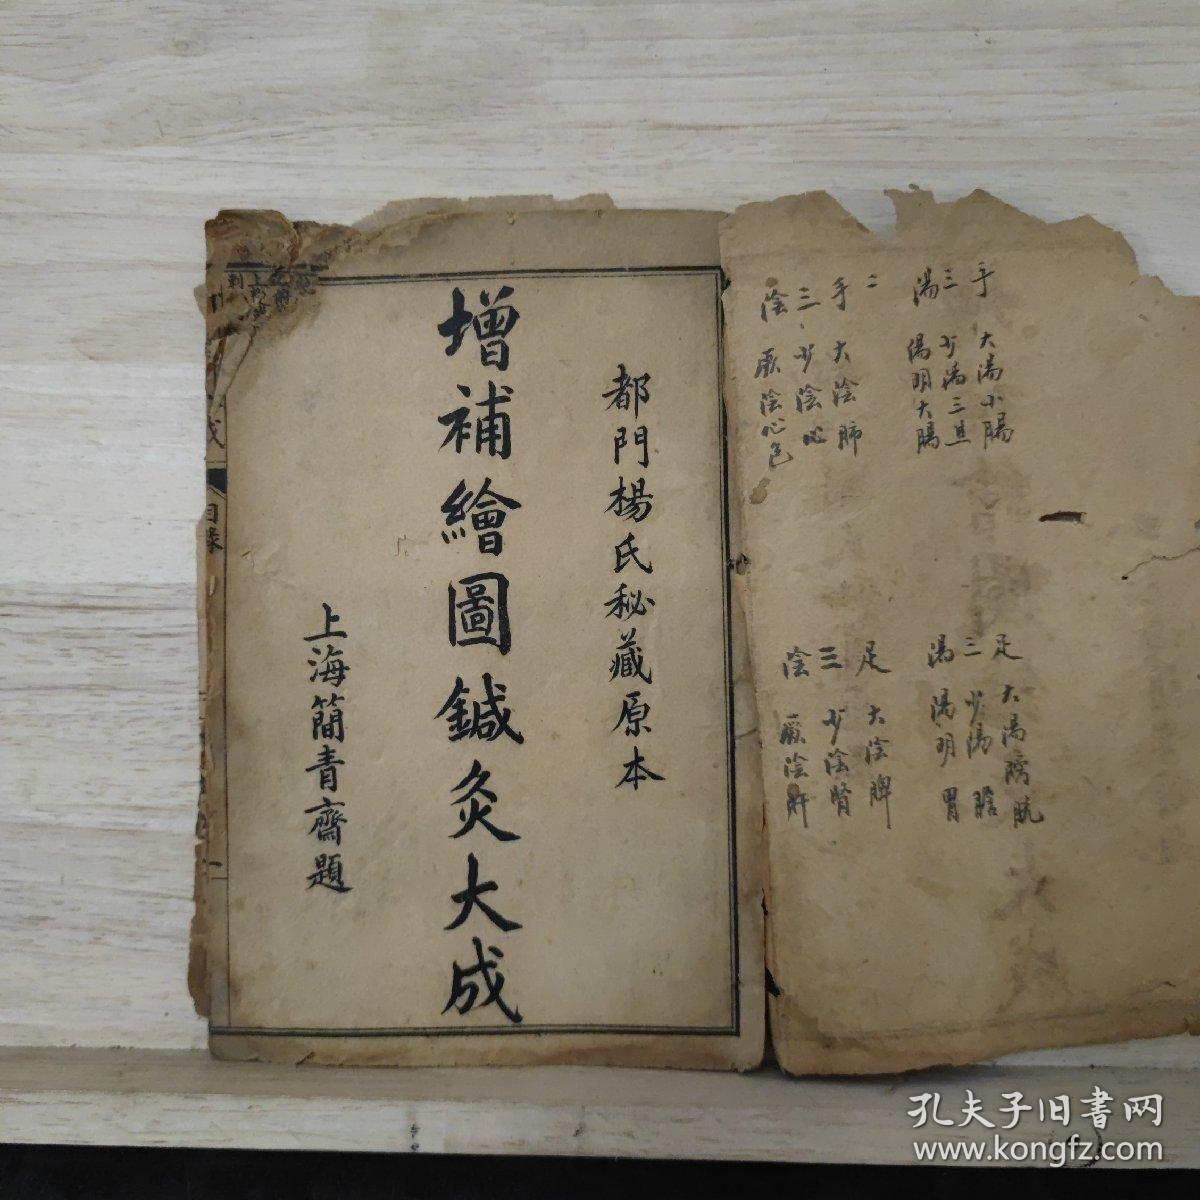 手三湯
大湯小腸
少湯三且
陽明大腸
二
手三陰
大陰肺
少陰心
厥陰心色
足三湯
大湯膀胱
少湯膽
湯明胃
足三陰
大陰脾
少陰腎
厥陰肝
都門楊氏秘藏原本
增補繪圖鍼灸大成
上海簡青齋題
成
目錄
孔夫子旧書网
www.kongfz.com